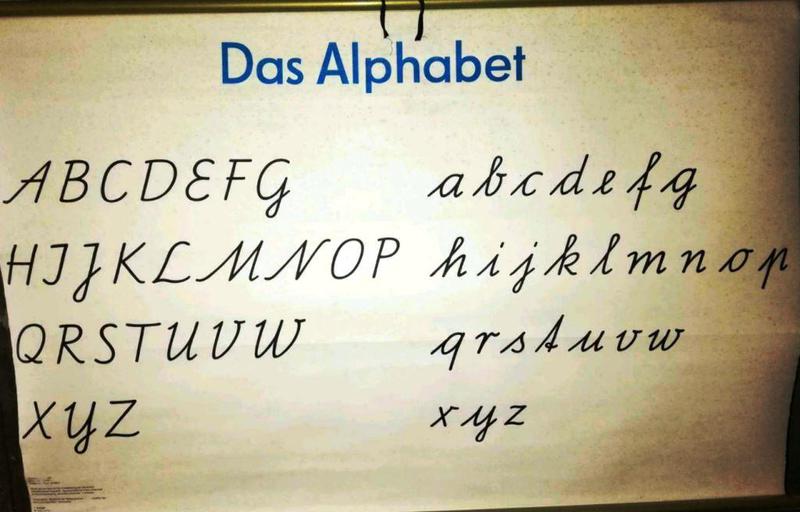 Das Alphabet
A B C D E F G a b c d e f g
H I J K L M N O P h i j k l m n o p
Q R S T U V W q r s t u v w
X Y Z x y z